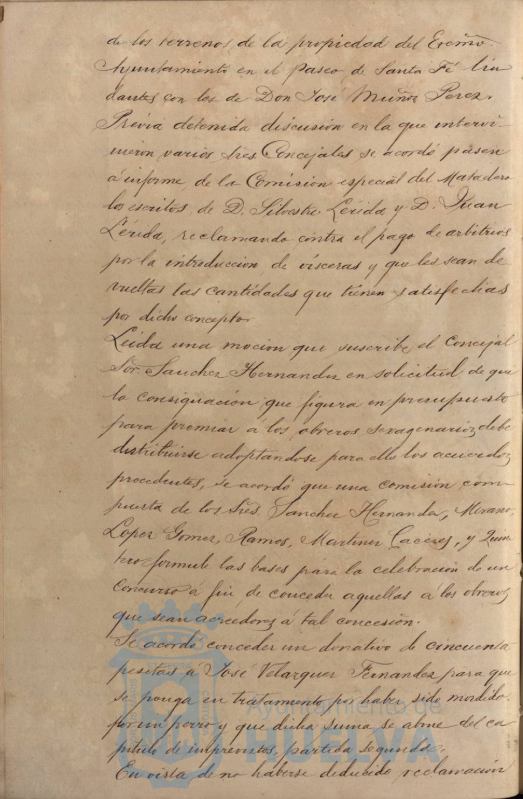 de los terrenos de la propiedad del Excmo.
Ayuntamiento en el Paseo de Santa Fé lin
dantes con los de Don José Muñoz Perez.
Previa detenida discusion en la que intervi-
nieron varios Sres Concejales se acordó pasen
á informe de la Comision especial del Matadero
los escritos de D. Silvestre Lérida y D. Juan
Lérida, reclamando contra el pago de arbitrios
por la introduccion de vísceras y que les sean de
vueltas las cantidades que tienen satisfechas
por dicho concepto.
Leida una mocion que suscribe el Concejal
Sor. Sanchez Hernandez en solicitud de que
la consignación que figura en presupuesto
para premiar a los obreros sexagenarios debe
distribuirse adoptandose para ello los acuerdos
procedentes, se acordó que una comision com
puesta de los Sres. Sanchez Hernandez, Morano,
Lopez Gomez, Ramos, Martinez Caceres, y Quin
tero formule las bases para la celebración de un
Concurso á fin de conceder aquellas á los obreros
que sean acreedores á tal concesión.
Se acordó conceder un donativo de cincuenta
pesetas a José Velazquez Fernandez para que
se ponga en tratamiento por haber sido mordido
por un perro y que dicha suma se abone del ca
pitulo de imprevistos, partida segunda.
En vista de no haberse deducido reclamación
Ayuntamiento de
HUELVA